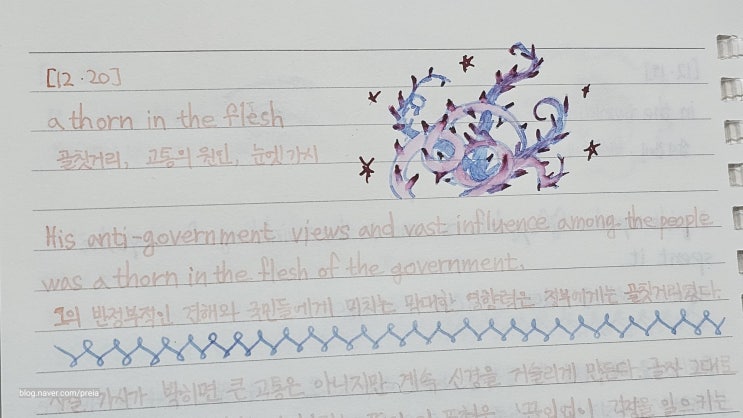 [12·20]
a thorn in the flesh
골칫거리, 고통의 원인, 눈엣가시
His anti-government views and vast influence among the people
was a thorn in the flesh of the government.
그의 반정부적인 견해와 국민들에게 미치는 막대한 영향력은 정부에게는 골칫거리였다.
가시가 박히면 큰 고통은 아니지만 계속 신경을 거슬리게 만든다. 글자 그대로
blog.naver.com/preia